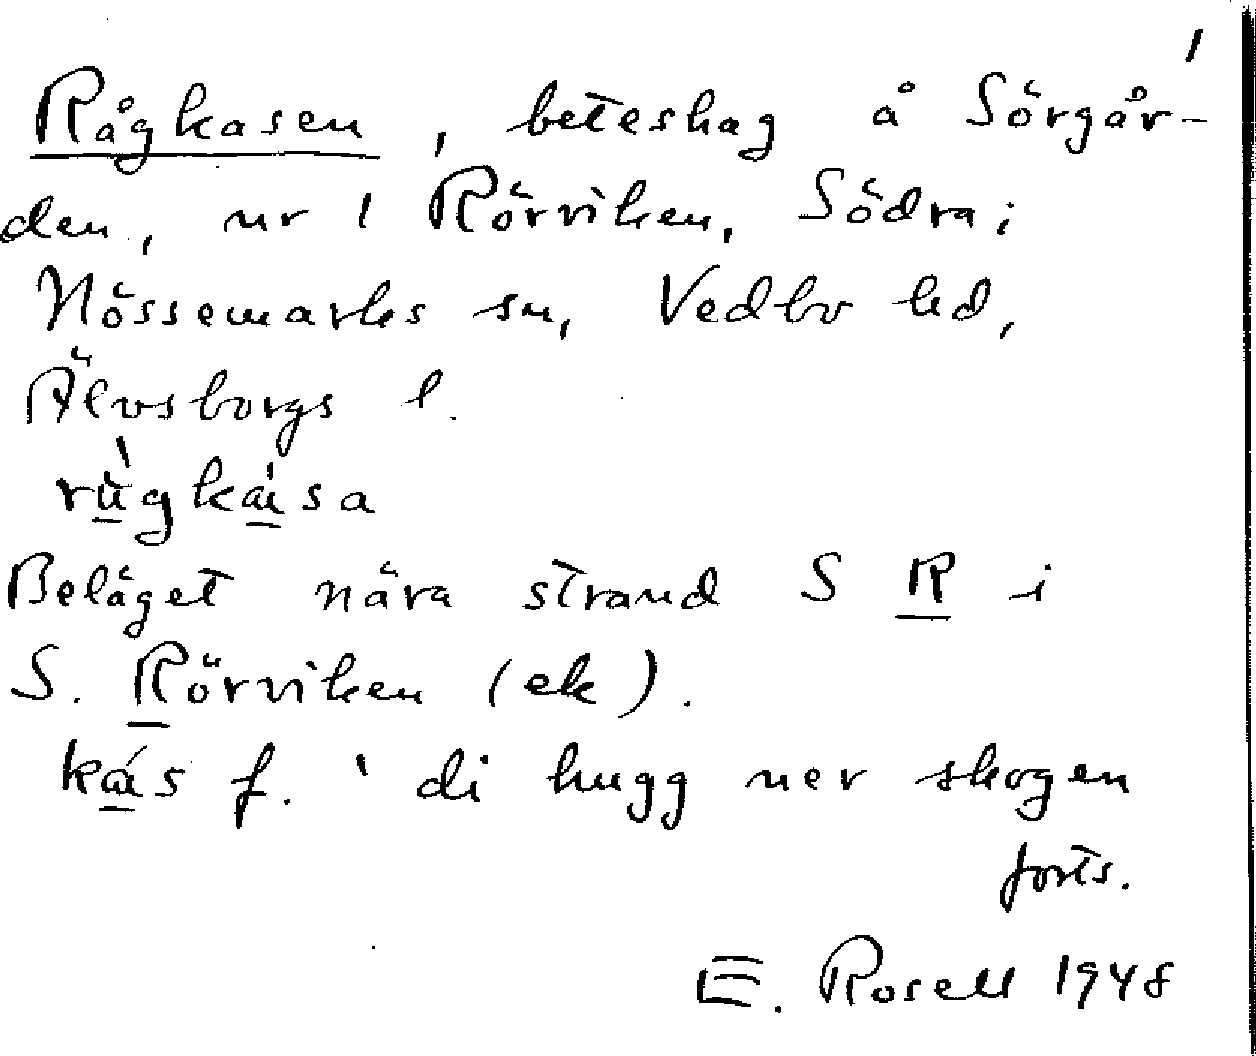 1
Rågkasen, beteshag å Sörgår-
den, nr 1 Rörviken, Södra i
Nössemarks sn, Vedbo hd,
Älvsborgs l.
rùgkása
Beläget nära strand S R i
S. Rörviken (ek).
kás f. 'di hugg ner skogen
forts.
E. Rosell 1948